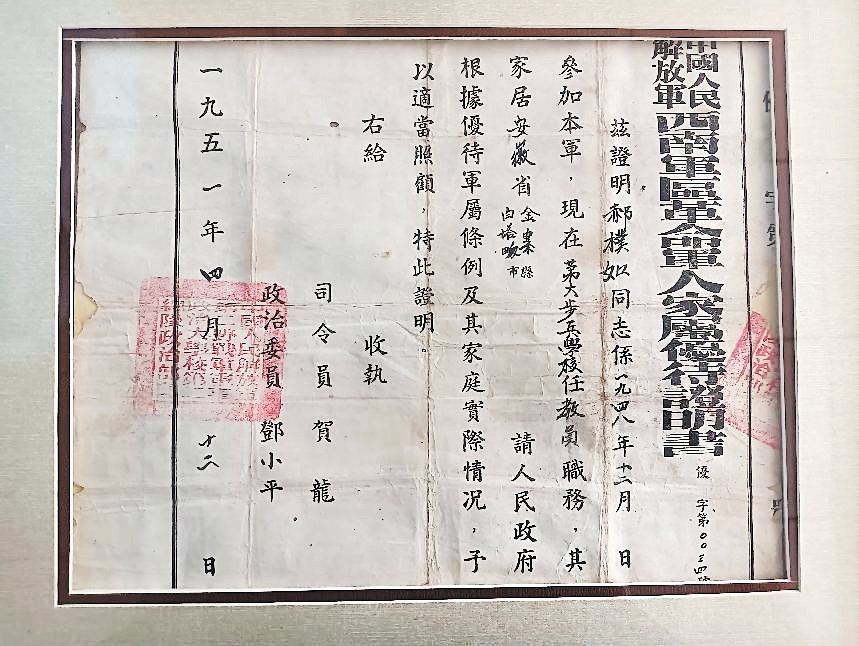 中國人民
解放軍
西南軍區革命軍人家屬優待證明書
優 字第００三四號
茲證明郝樸如同志係一九四八年十二月 日
參加本軍，現在第六步兵學校任教員職務，其
家居安徽省金寨縣白塔畈市 請人民政府
根據優待軍屬條例及其家庭實際情况，予
以適當照顧，特此證明。
右給 收執
司令員 賀龍
政治委員 鄧小平
一九五一年四月十二日